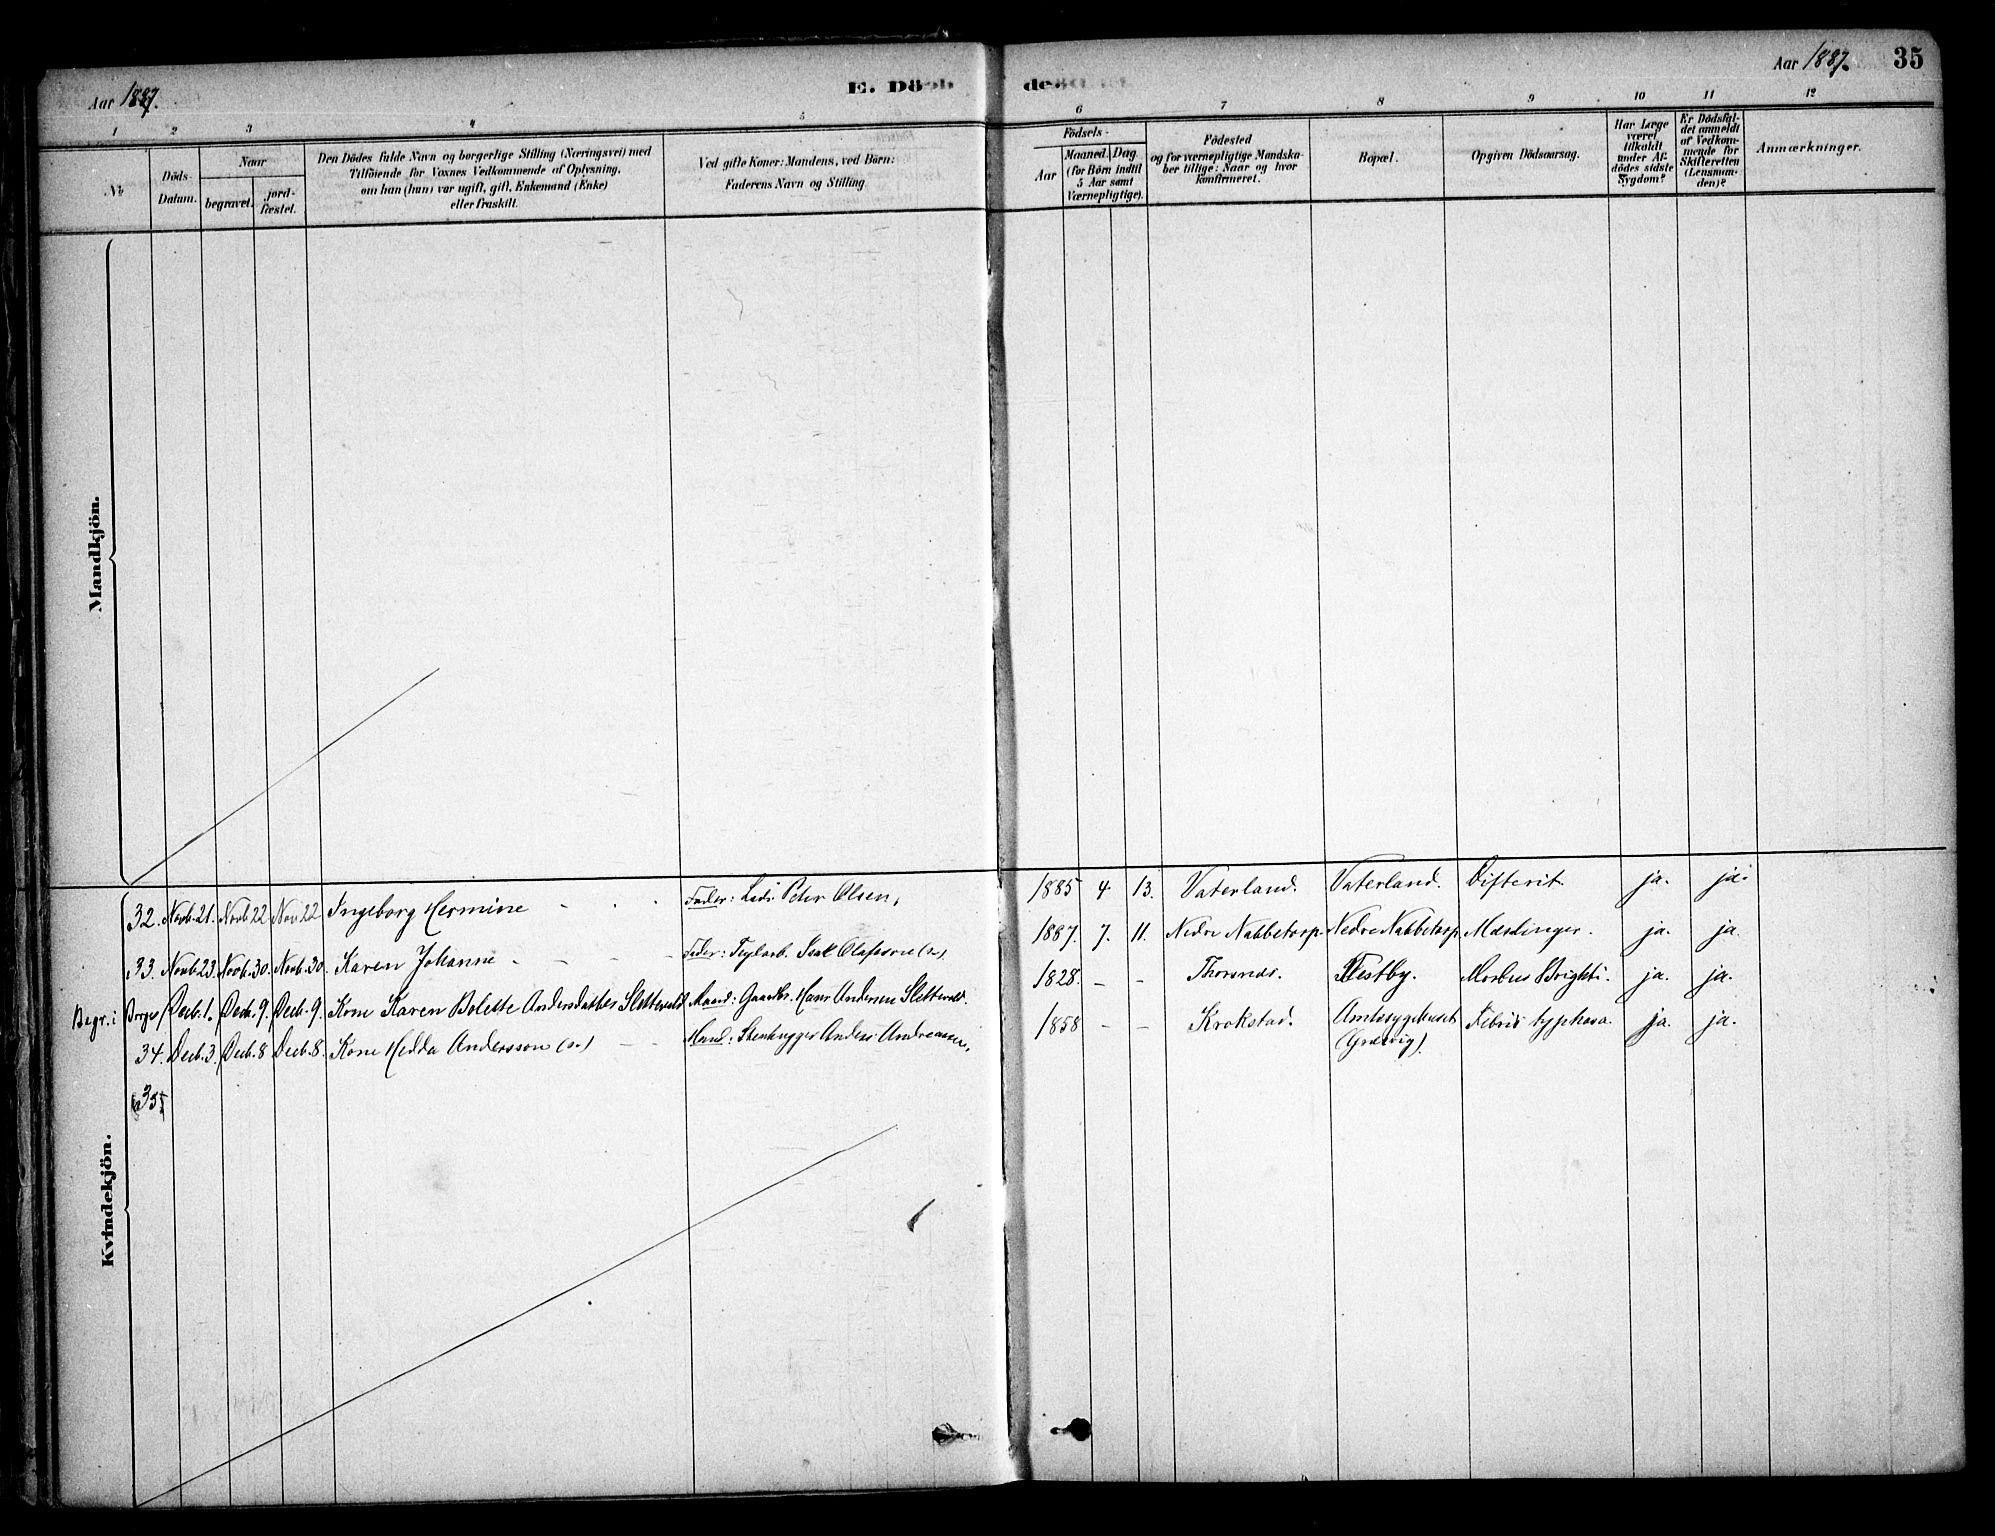 Aar 1887.
E. Döde
Aar 1887. 35
1 2 3 4 5 6 7 8 9 10 11 12
No
Döds-Datum.
Naar
begravet.
jord-fæstet.
Den Dödes fulde Navn og borgerlige Stilling (Næringsvei) med
Tilföiende for Voxnes Vedkommende af Oplysning,
om han (hun) var ugift, gift, Enkemand (Enke)
eller fraskilt.
Ved gifte Koner: Mandens, ved Börn:
Faderens Navn og Stilling
Födsels-
Aar
Maaned. Dag
(for Börn indtil
5 Aar samt
Værnepligtige).
Födested
og for værnepligtige Mandska-
ber tillige: Naar og hvor
konfirmeret.
Bopæl.
Opgiven Dödsaarsag.
Har Læge
været
tilkaldt
under Af-
dödes sidste
Sygdom?
Er Dödsfal-
det anmeldt
af Vedkom-
mende for
Skifteretten
(Lensman-
den)?
Anmærkninger.
Mandkjön.
32. Novb. 21. Novb 22 Nov. 22 Ingeborg Hermine - Fader: Peter Olsen, 1885 4. 13. Vaterland. Vaterland. Difterit. ja. ja.
33. Novb. 23. Novb. 30. Novb. 30. Karen Johanne - - - - Fader: Teglarb. Isak Olafsson (sv.) 1887. 7. 11. Nedre Nabbetorp Nedre Nabbetorp Mæslinger. ja. ja.
Begr. i Borge Decb. 1. Decb. 9. Decb. 9. Kone Karen Bolette Andersdatter Slettevold Mand: Gaardbr. Hans Andersen Slettevold. 1828. - - Thorsnes. Festby. Morbus Brighti. ja. ja.
34. Decb. 3. Decb. 8 Decb. 8. Kone Hedda Andersson (sv.) - - Mand: Stenhugger Anders Andreassen, 1858 - - Krokstad. Amtssygehuset Febris typhosa. ja. ja.
(Græsvig).
35
Kvindekjön.